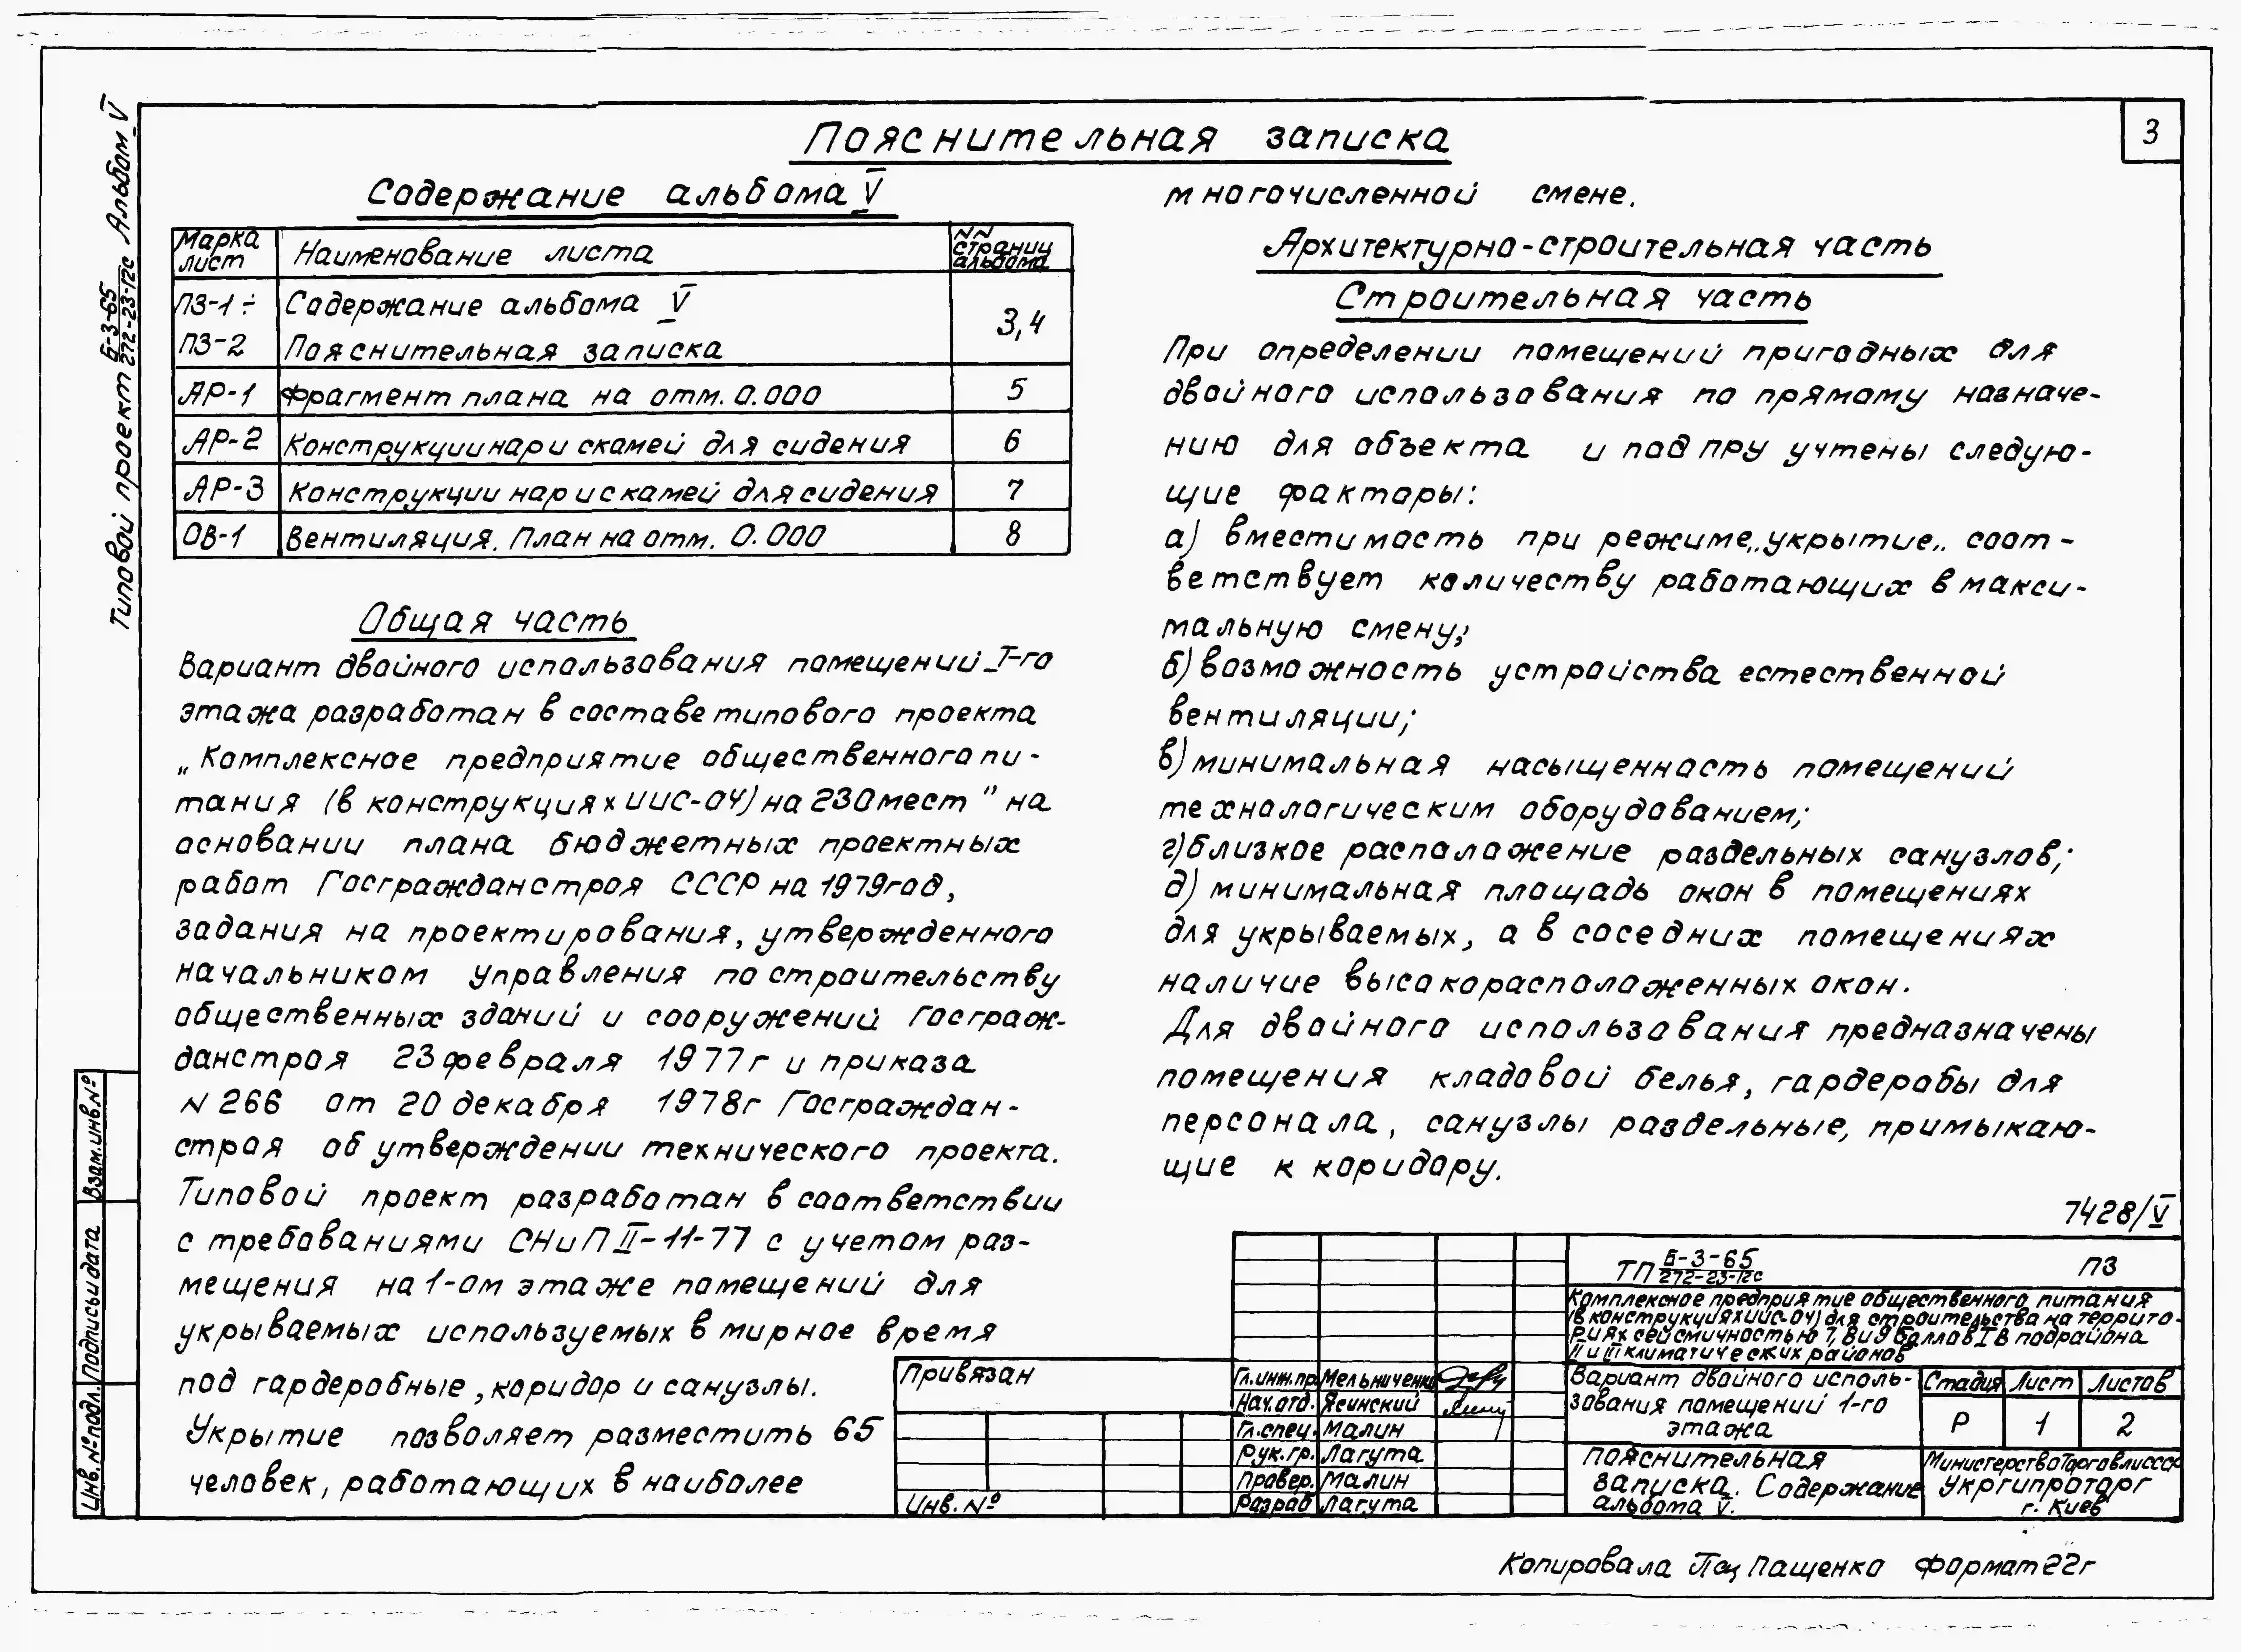 3
Типовой проект Б-3-65 / 272-23-12с Альбом V
Пояснительная записка
Содержание альбома V
Марка лист | Наименование листа | NN страниц альбома
ПЗ-1÷ | Содержание альбома V | 3,4
ПЗ-2 | Пояснительная записка
АР-1 | Фрагмент плана на отм. 0.000 | 5
АР-2 | Конструкции нар и скамей для сидения | 6
АР-3 | Конструкции нар и скамей для сидения | 7
ОВ-1 | Вентиляция. План на отм. 0.000 | 8
Общая часть
Вариант двойного использования помещений I-го
этажа разработан в составе типового проекта
„Комплексное предприятие общественного пи-
тания (в конструкциях ИИС-04) на 230 мест" на
основании плана бюджетных проектных
работ Госгражданстроя СССР на 1979год,
задания на проектирования, утвержденного
начальником управления по строительству
общественных зданий и сооружений Госграж-
данстроя 23 февраля 1977г и приказа
N 266 от 20 декабря 1978г Госграждан-
строя об утверждении технического проекта.
Типовой проект разработан в соответствии
с требованиями СНиП II-11-77 с учетом раз-
мещения на 1-ом этаже помещений для
укрываемых используемых в мирное время
под гардеробные, коридор и санузлы.
Укрытие позволяет разместить 65
человек, работающих в наиболее
многочисленной смене.
Архитектурно-строительная часть
Строительная часть
При определении помещений пригодных для
двойного использования по прямому назначе-
нию для объекта и под ПРУ учтены следую-
щие факторы:
а) вместимость при режиме „укрытие„ соот-
ветствует количеству работающих в макси-
мальную смену;
б) возможность устройства естественной
вентиляции;
в) минимальная насыщенность помещений
технологическим оборудованием;
г) близкое расположение раздельных санузлов;
д) минимальная площадь окон в помещениях
для укрываемых, а в соседних помещениях
наличие высокорасположенных окон.
Для двойного использования предназначены
помещения кладовой белья, гардеробы для
персонала, санузлы раздельные, примыкаю-
щие к коридору.
7428/V
ТП Б-3-65 / 272-23-12с ПЗ
Комплексное предприятие общественного питания
(в конструкциях ИИС-04) для строительства на террито-
риях сейсмичностью 7, 8 и 9 баллов I В подрайона
II и III климатических районов
Привязан
Инв. №
Гл.инж.пр. Мельниченко
Нач.отд. Ясинский
Гл.спец. Малин
Рук.гр. Лагута
Провер. Малин
Разраб Лагута
Вариант двойного исполь-
зования помещений 1-го
этажа
Стадия Лист Листов
Р 1 2
Пояснительная
записка. Содержание
альбома V.
Министерство Торговли СССР
Укргипроторг
г. Киев
Взам.инв.№
Подпись и дата
Инв.№подл.
Копировала Пащенко Формат 22г